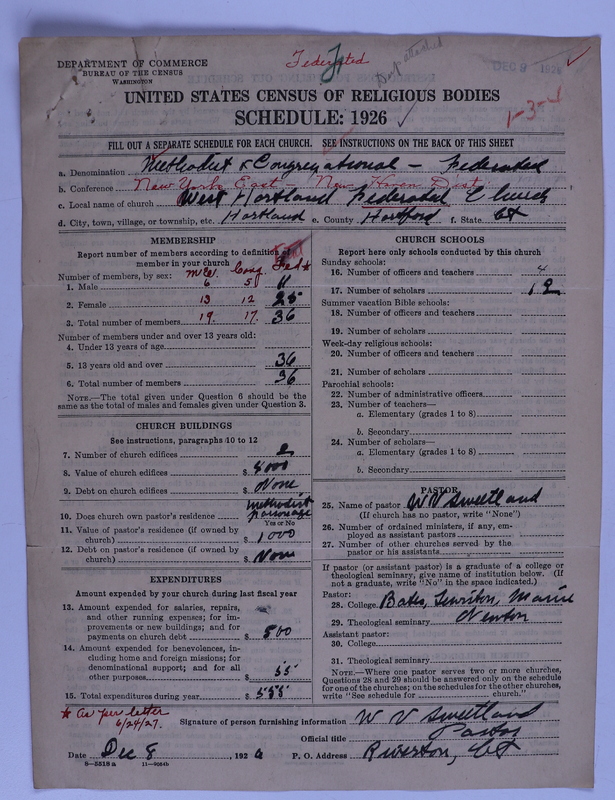 DEPARTMENT OF COMMERCE
BUREAU OF THE CENSUS
WASHINGTON
Federated
DEC 9 1926
UNITED STATES CENSUS OF RELIGIOUS BODIES
SCHEDULE: 1926
1-3-1
FILL OUT A SEPARATE SCHEDULE FOR EACH CHURCH. SEE INSTRUCTIONS ON THE BACK OF THIS SHEET
a. Denomination Methodist & Congregational - Federated
b. Conference New York East - New Haven Dist
c. Local name of church West Hartland Federated Church
d. City, town, village, or township, etc. Hartland e. County Hartford f. State Ct
MEMBERSHIP
Report number of members according to definition of
member in your church
Number of members, by sex: M.E. Cong Fed*
1. Male 6 5 11
2. Female 13 12 25
3. Total number of members 19. 17. 36
Number of members under and over 13 years old:
4. Under 13 years of age
5. 13 years old and over 36
6. Total number of members 36
NOTE.—The total given under Question 6 should be
same as the total of males and females given under Question 3.
CHURCH BUILDINGS
See instructions, paragraphs 10 to 12
7. Number of church edifices 2
8. Value of church edifices $ 8000
9. Debt on church edifices $ None
10. Does church own pastor's residence Methodist parsonage
Yes or No
11. Value of pastor's residence (if owned by
church) $ 1000
12. Debt on pastor's residence (if owned by
church) $ None
EXPENDITURES
Amount expended by your church during last fiscal year
13. Amount expended for salaries, repairs,
and other running expenses; for im-
provements or new buildings; and for
payments on church debt $ 500
14. Amount expended for benevolences, in-
cluding home and foreign missions; for
denominational support; and for all
other purposes $ 55
15. Total expenditures during year $ 555
CHURCH SCHOOLS
Report here only schools conducted by this church
Sunday schools:
16. Number of officers and teachers 4
17. Number of scholars 12
Summer vacation Bible schools:
18. Number of officers and teachers
19. Number of scholars
Week-day religious schools:
20. Number of officers and teachers
21. Number of scholars
Parochial schools:
22. Number of administrative officers
23. Number of teachers—
a. Elementary (grades 1 to 8)
b. Secondary
24. Number of scholars—
a. Elementary (grades 1 to 8)
b. Secondary
PASTOR
25. Name of pastor W V Sweetland
(If church has no pastor, write "None")
26. Number of ordained ministers, if any, em-
ployed as assistant pastors
27. Number of other churches served by the
pastor or his assistants
If pastor (or assistant pastor) is a graduate of a college or
theological seminary, give name of institution below. (If
not a graduate, write "No" in the space indicated.)
Pastor:
28. College Bates, Lewiston, Maine
29. Theological seminary Newton
Assistant pastor:
30. College
31. Theological seminary
NOTE.—Where one pastor serves two or more churches,
Questions 28 and 29 should be answered only on the schedule
for one of the churches; on the schedules for the other churches,
write "See schedule for church."
* As per letter
6/24/27.
Signature of person furnishing information W V Sweetland
Official title Pastor
Date Dec 8, 1926 P. O. Address Riverton, Ct
8—5518a 11—9054b